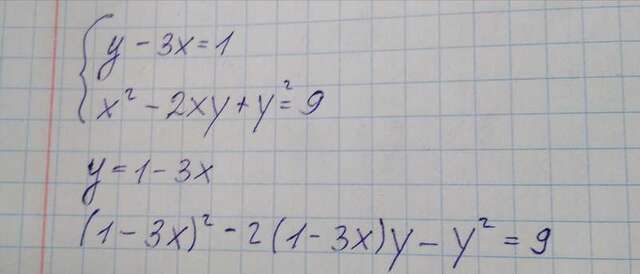 y - 3x = 1
x² - 2xy + y² = 9
y = 1 - 3x
(1 - 3x)² - 2(1 - 3x)y - y² = 9